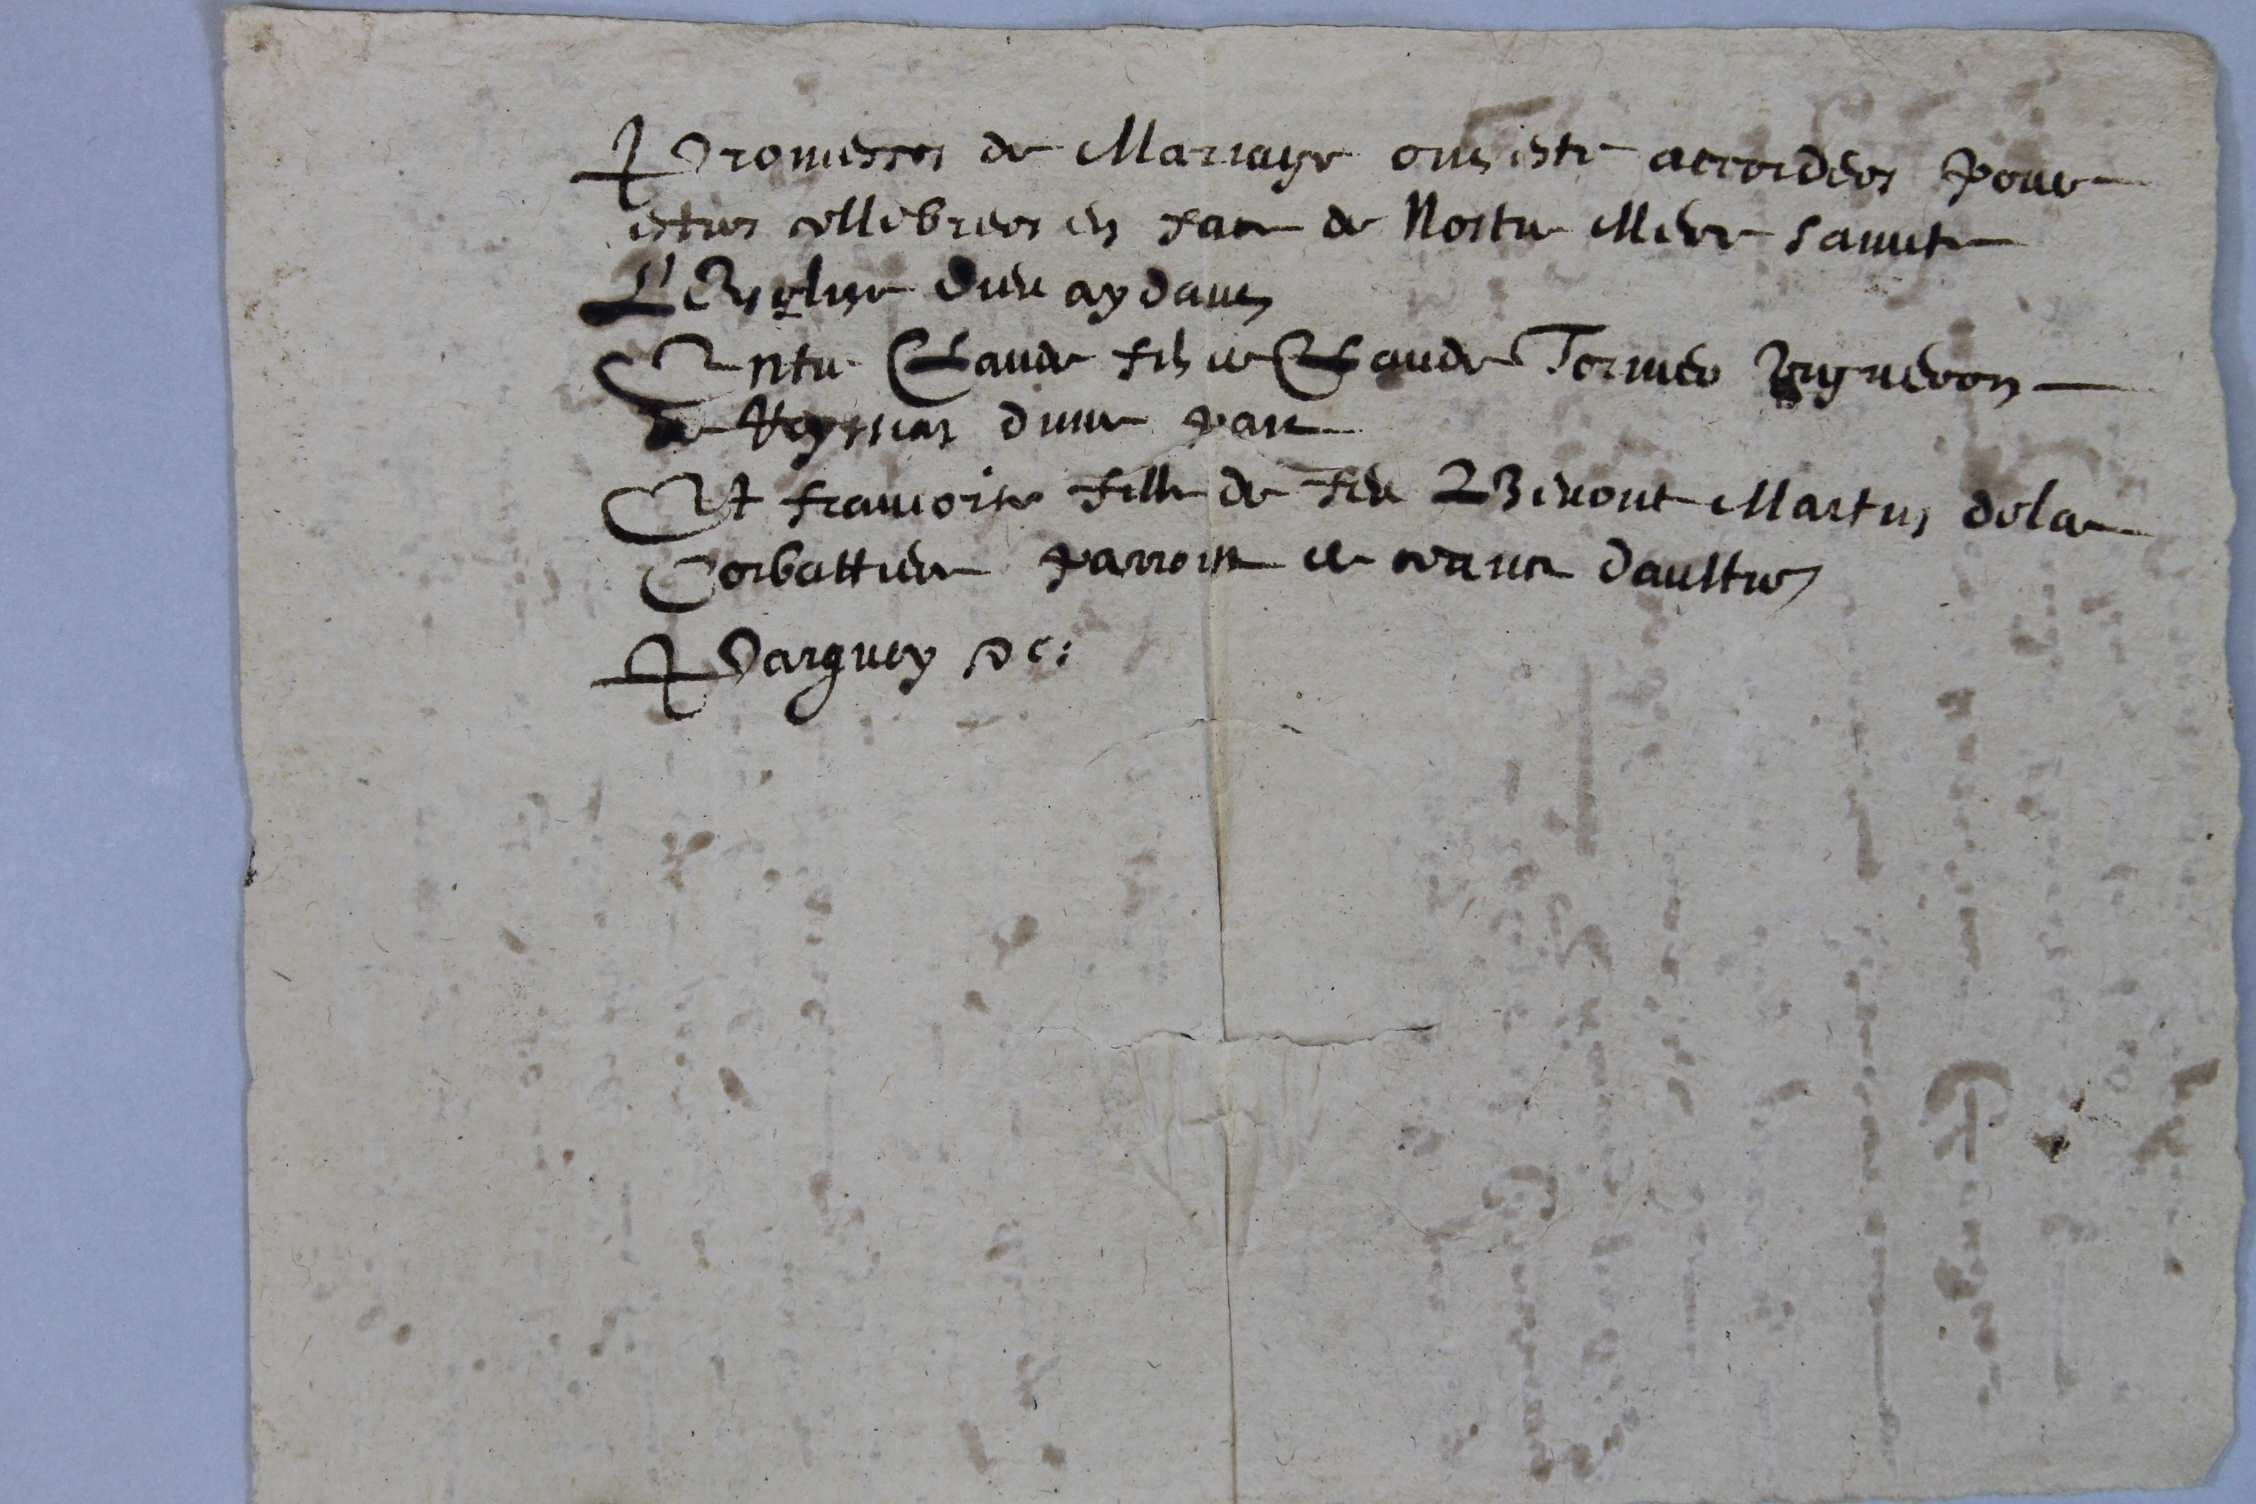 Promesses de Mariage ont este accordees pour
estres cellebrees en face de Nostre Mere saincte
L'Esglise dieu aydant
Entre Claude filz de Claude Tornier vigneron
de d'une part
Et francoise fille de feu Benoict Martin de la
Corbattiere parroisse de d'aultre
Parguey